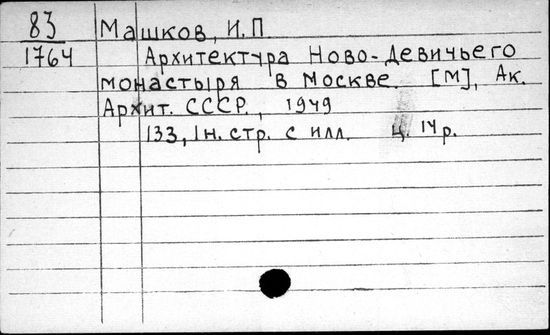 83 Машков, И.П.
1764 Архитектура Ново-Девичьего
монастыря в Москве. [М], Ак.
Архит. СССР., 1949
133, 1н. стр. с илл. ц. 14р.